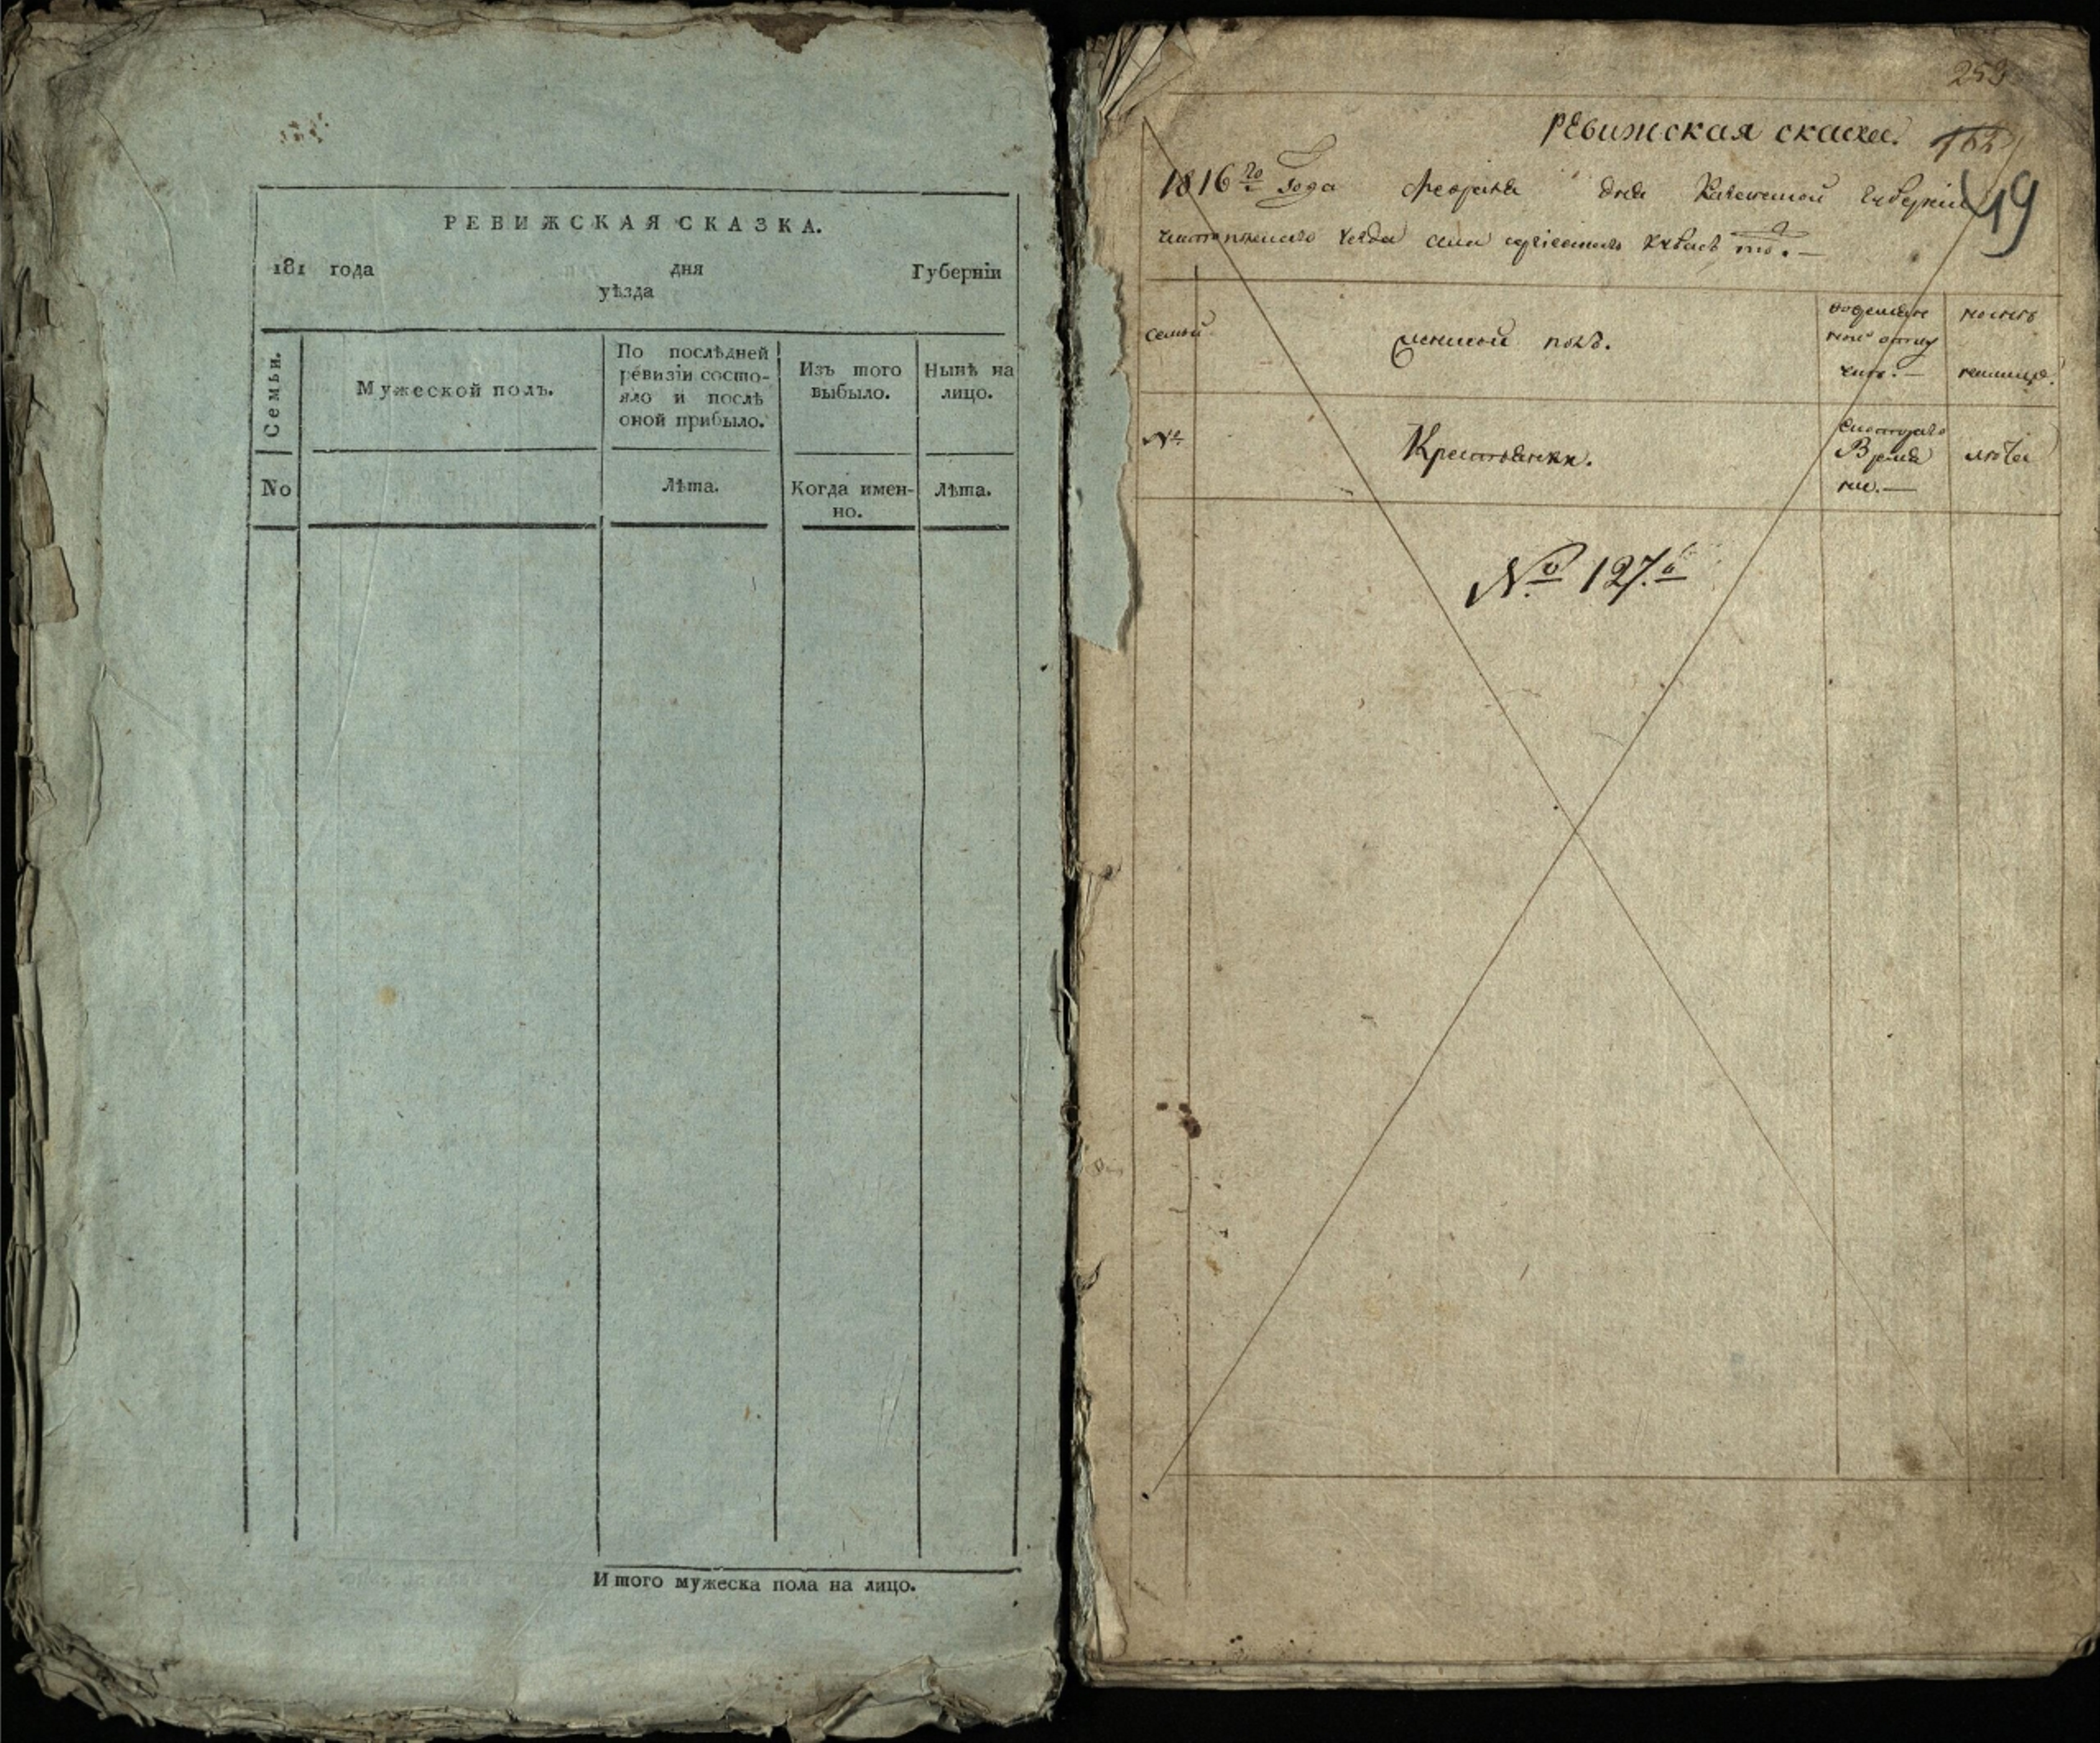 РЕВИЖСКАЯ СКАЗКА.
181 года дня Губернiи
уѣзда
Семьи.
Мужеской полъ.
По послѣдней
ревизiи состо-
яло и послѣ
оной прибыло.
Изъ того
выбыло.
Нынѣ на
лицо.
No
Лѣта.
Когда имен-
но.
Лѣта.
Итого мужеска пола на лицо.
253
Ревижская скаска.
19
1816го Года февраля дня Казанской Губернiи
Чистопольскаго уезда села
семьи
женской полъ.
Nо
Крестьянки.
Време
ни.—
лета
No 127й